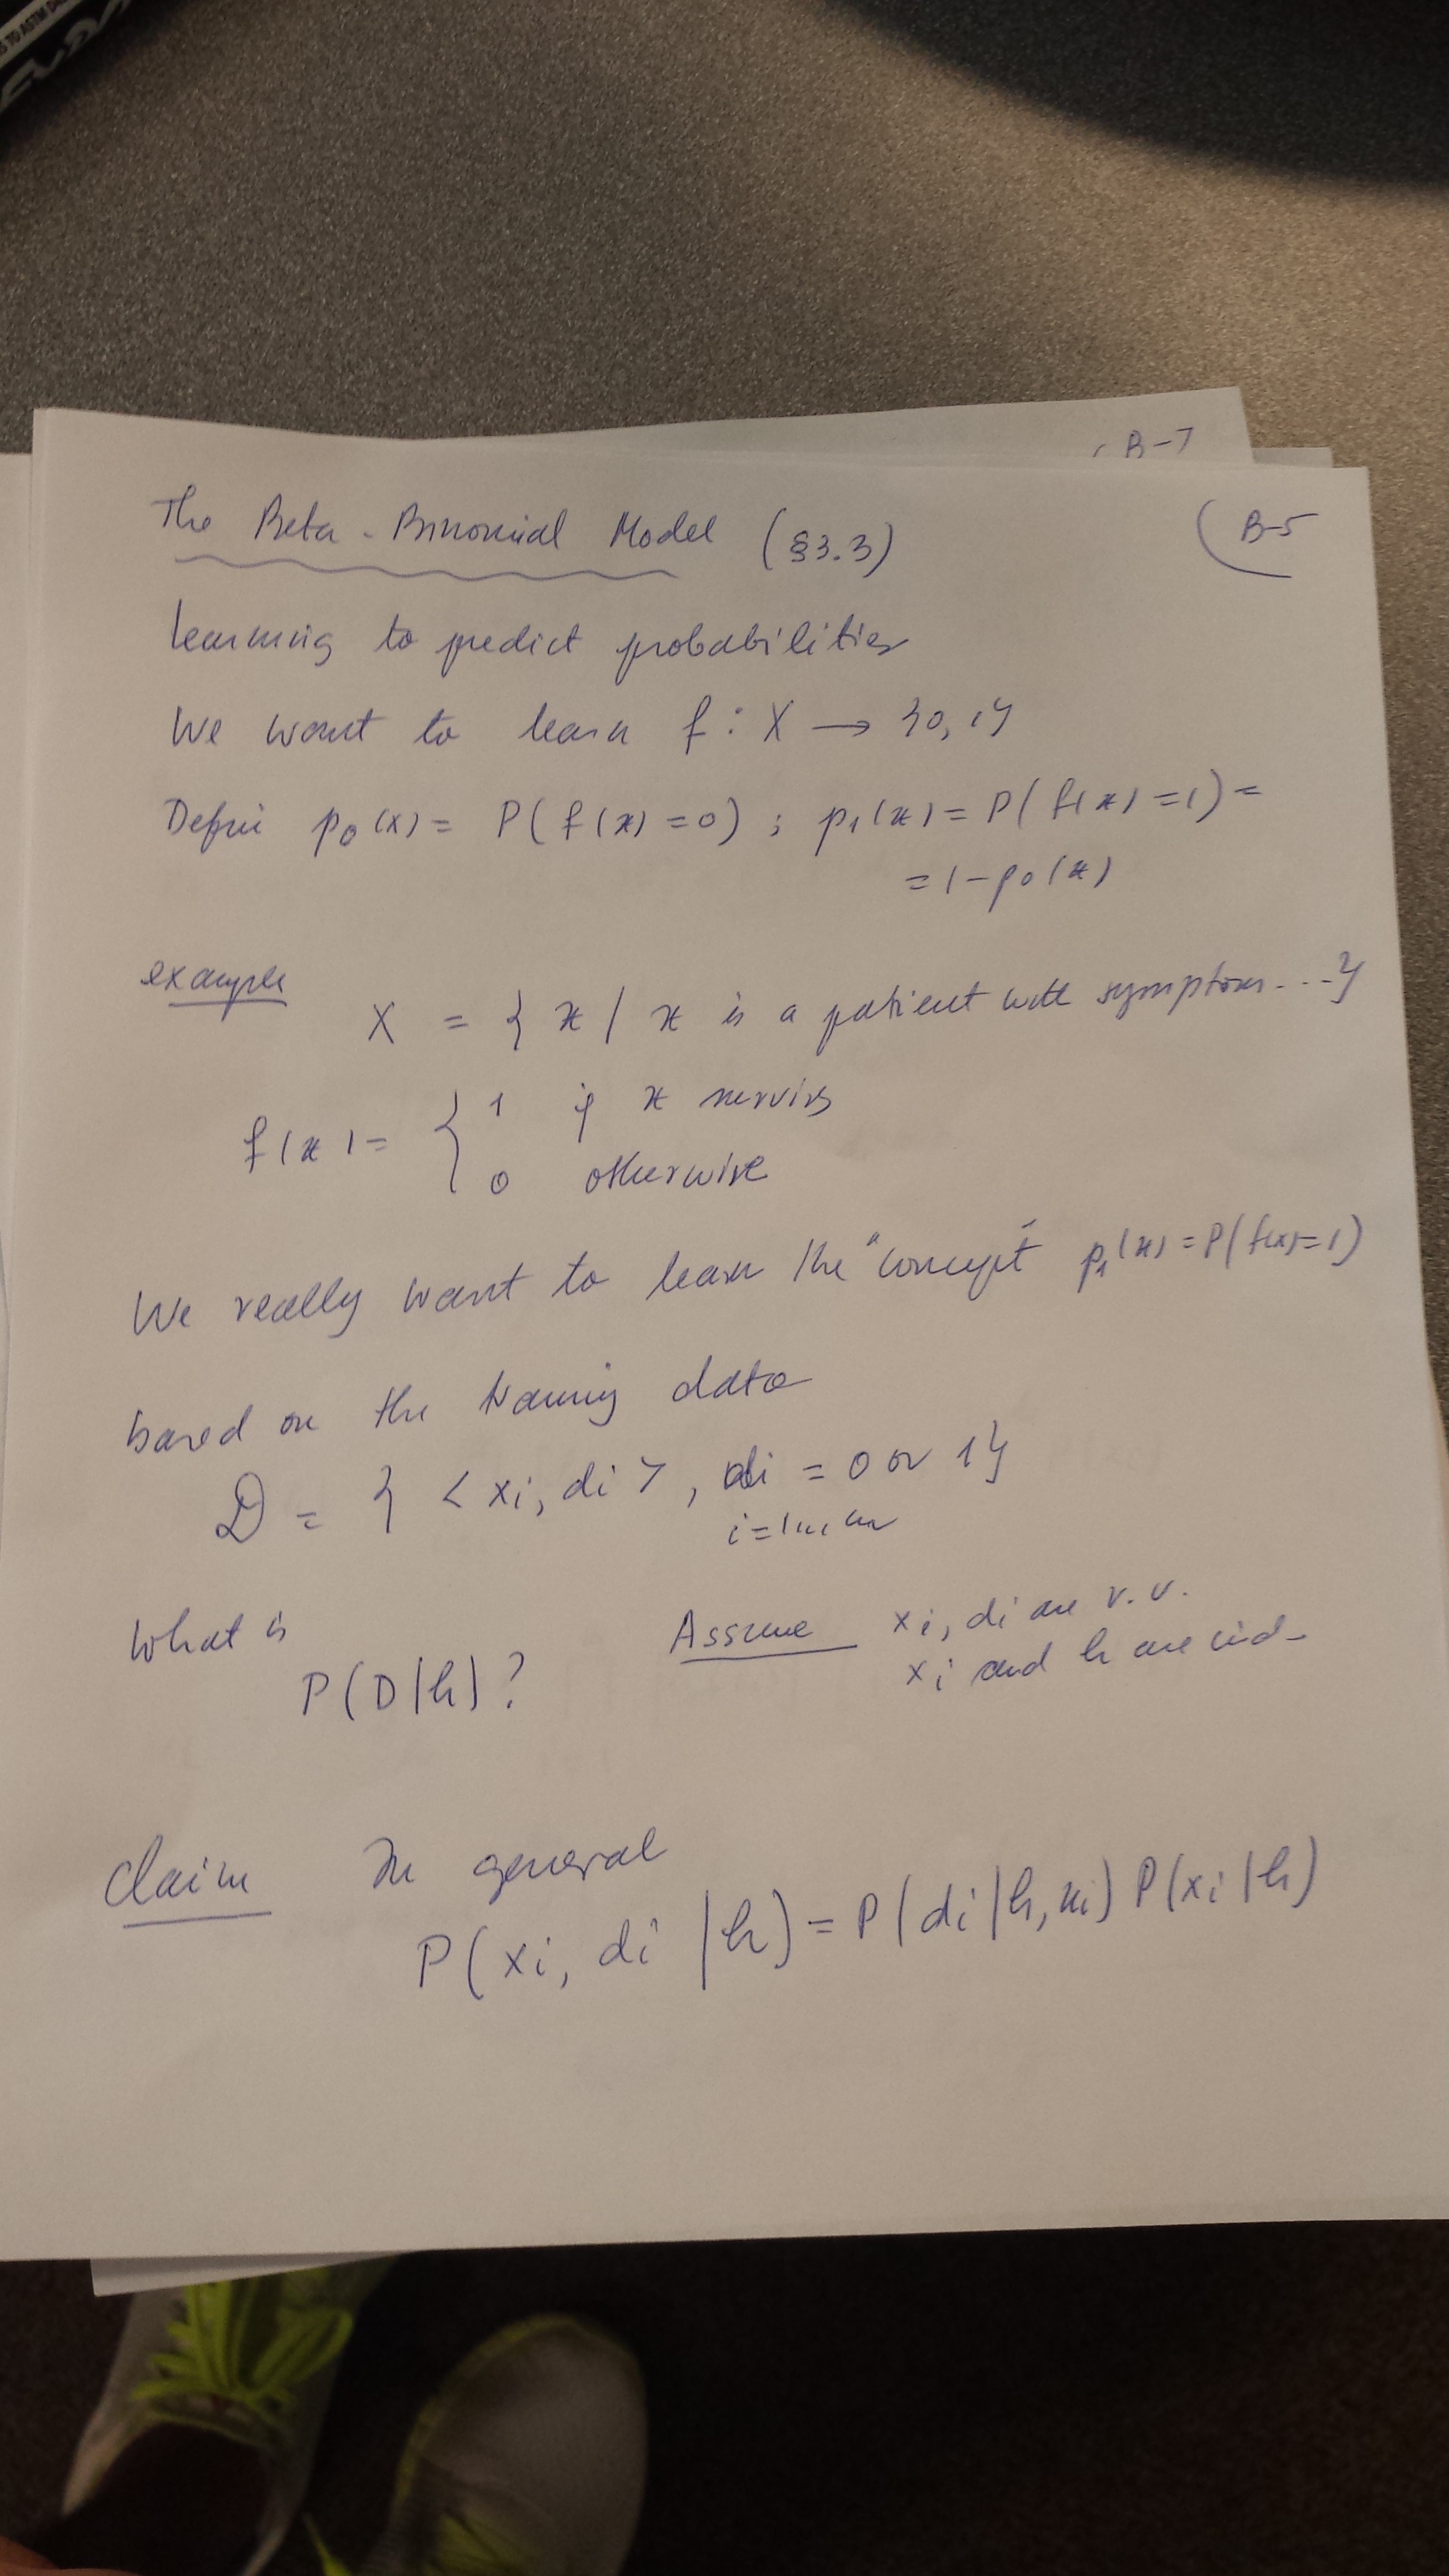 B-7
The Beta-Binomial Model (§3.3)
B-5
Learning to predict probabilities
We want to learn f : X → {0, 1}
Define p₀(x) = P(f(x) = 0) ; p₁(x) = P(f(x) = 1) =
= 1 - p₀(x)
example
X = { x / x is a patient with symptoms ... }
f(x) = { 1 if x survives
0 otherwise
We really want to learn the "concept" p₁(x) = P(f(x) = 1)
based on the training data
D = { < xi, di >, di = 0 or 1 }
What is
P(D|h) ?
Assume xi, di are r.v.
xi and h are ind.
Claim In general
P(xi, di | h) = P(di | h, xi) P(xi | h)